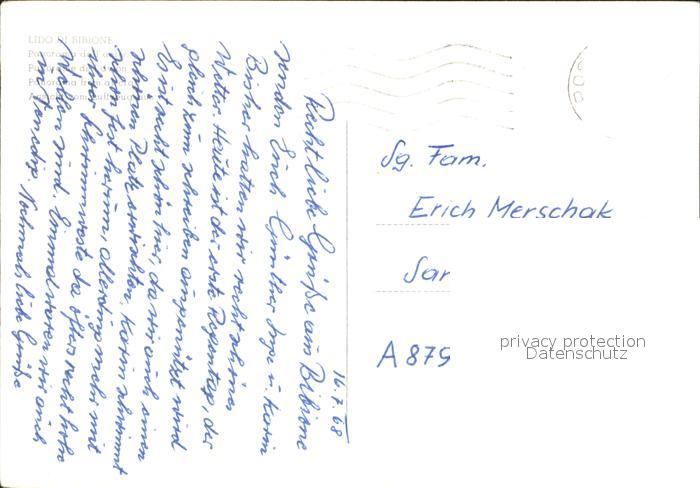 LIDO DI BIBIONE
16.7.68
Recht liebe Grüße aus Bibione
senden Erich Günther Inge u. Karin
Bisher hatten wir recht schönes
Wetter. Heute ist der erste Regentag, der
gleich zum schreiben ausgenützt wird
Es ist recht schön hier, da wir auch einen
schönen Platz erwischten. Karin schwimmt
schon fest herum, allerdings mehr mit
ihrer Schwimmweste da öfters recht hohe
Wellen sind. Einmal waren wir auch
in Venedig. Nochmals liebe Grüße
Sg. Fam.
Erich Merschak
Sar
A 875
privacy protection
Datenschutz